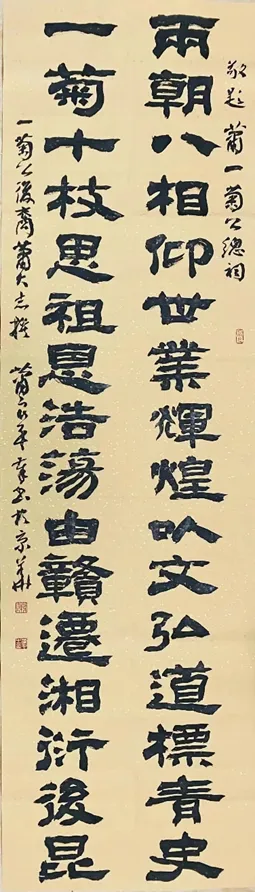 敬題蕭一菊公總祠
兩朝八相仰世業輝煌以文弘道標青史
一菊十枝思祖恩浩蕩由贛遷湘衍後昆
一菊公後裔蕭大志撰 蕭 平 書於京華